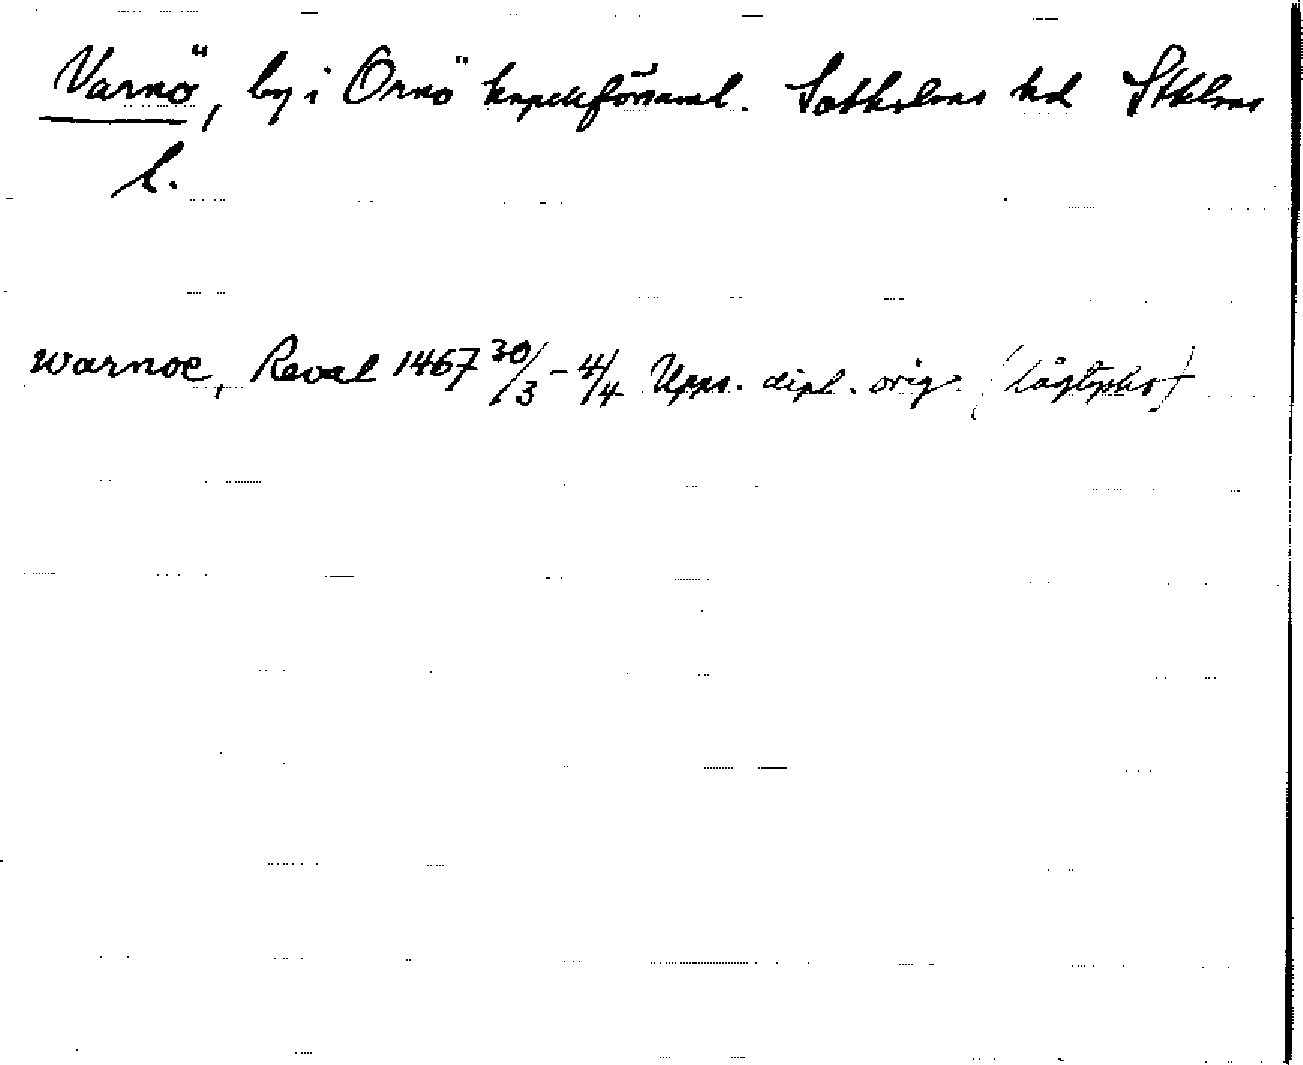 Varnö, by i Ornö kapellförsaml. Sotholms hd Sthlms
l.
warnoe, Reval 1467 30/3 - 4/4 Upps. dipl. orig. (lågtyska)